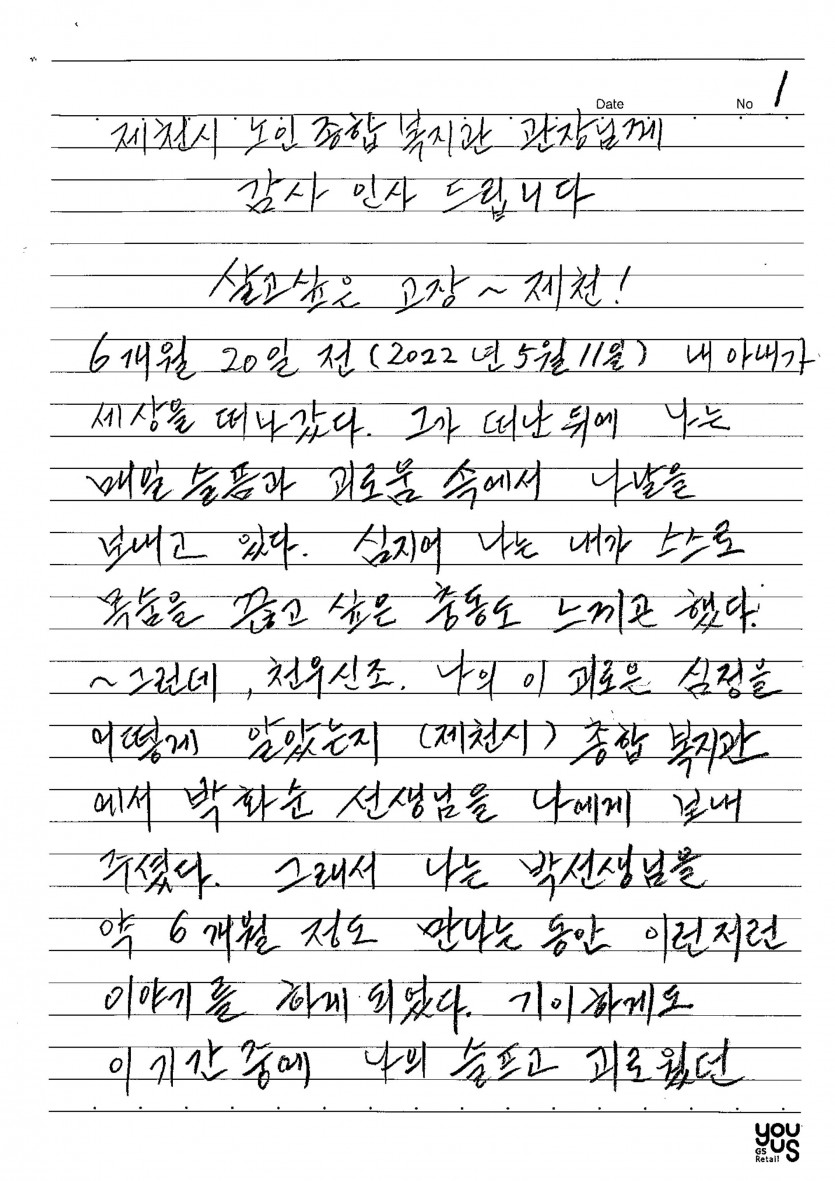 Date No 1
제천시 노인종합복지관 관장님께
감사 인사 드립니다
살고싶은 고장 ~ 제천!
6개월 20일 전 (2022년 5월 11일) 내 아내가
세상을 떠나갔다. 그가 떠난 뒤에 나는
매일 슬픔과 괴로움 속에서 나날을
보내고 있다. 심지어 나는 내가 스스로
목숨을 끊고 싶은 충동도 느끼곤 했다.
~그런데, 천우신조. 나의 이 괴로운 심정을
어떻게 알았는지 (제천시) 종합복지관
에서 박화순 선생님을 나에게 보내
주셨다. 그래서 나는 박선생님을
약 6개월 정도 만나는 동안 이런저런
이야기를 하게 되었다. 기이하게도
이 기간 중에 나의 슬프고 괴로웠던
you us
GS Retail